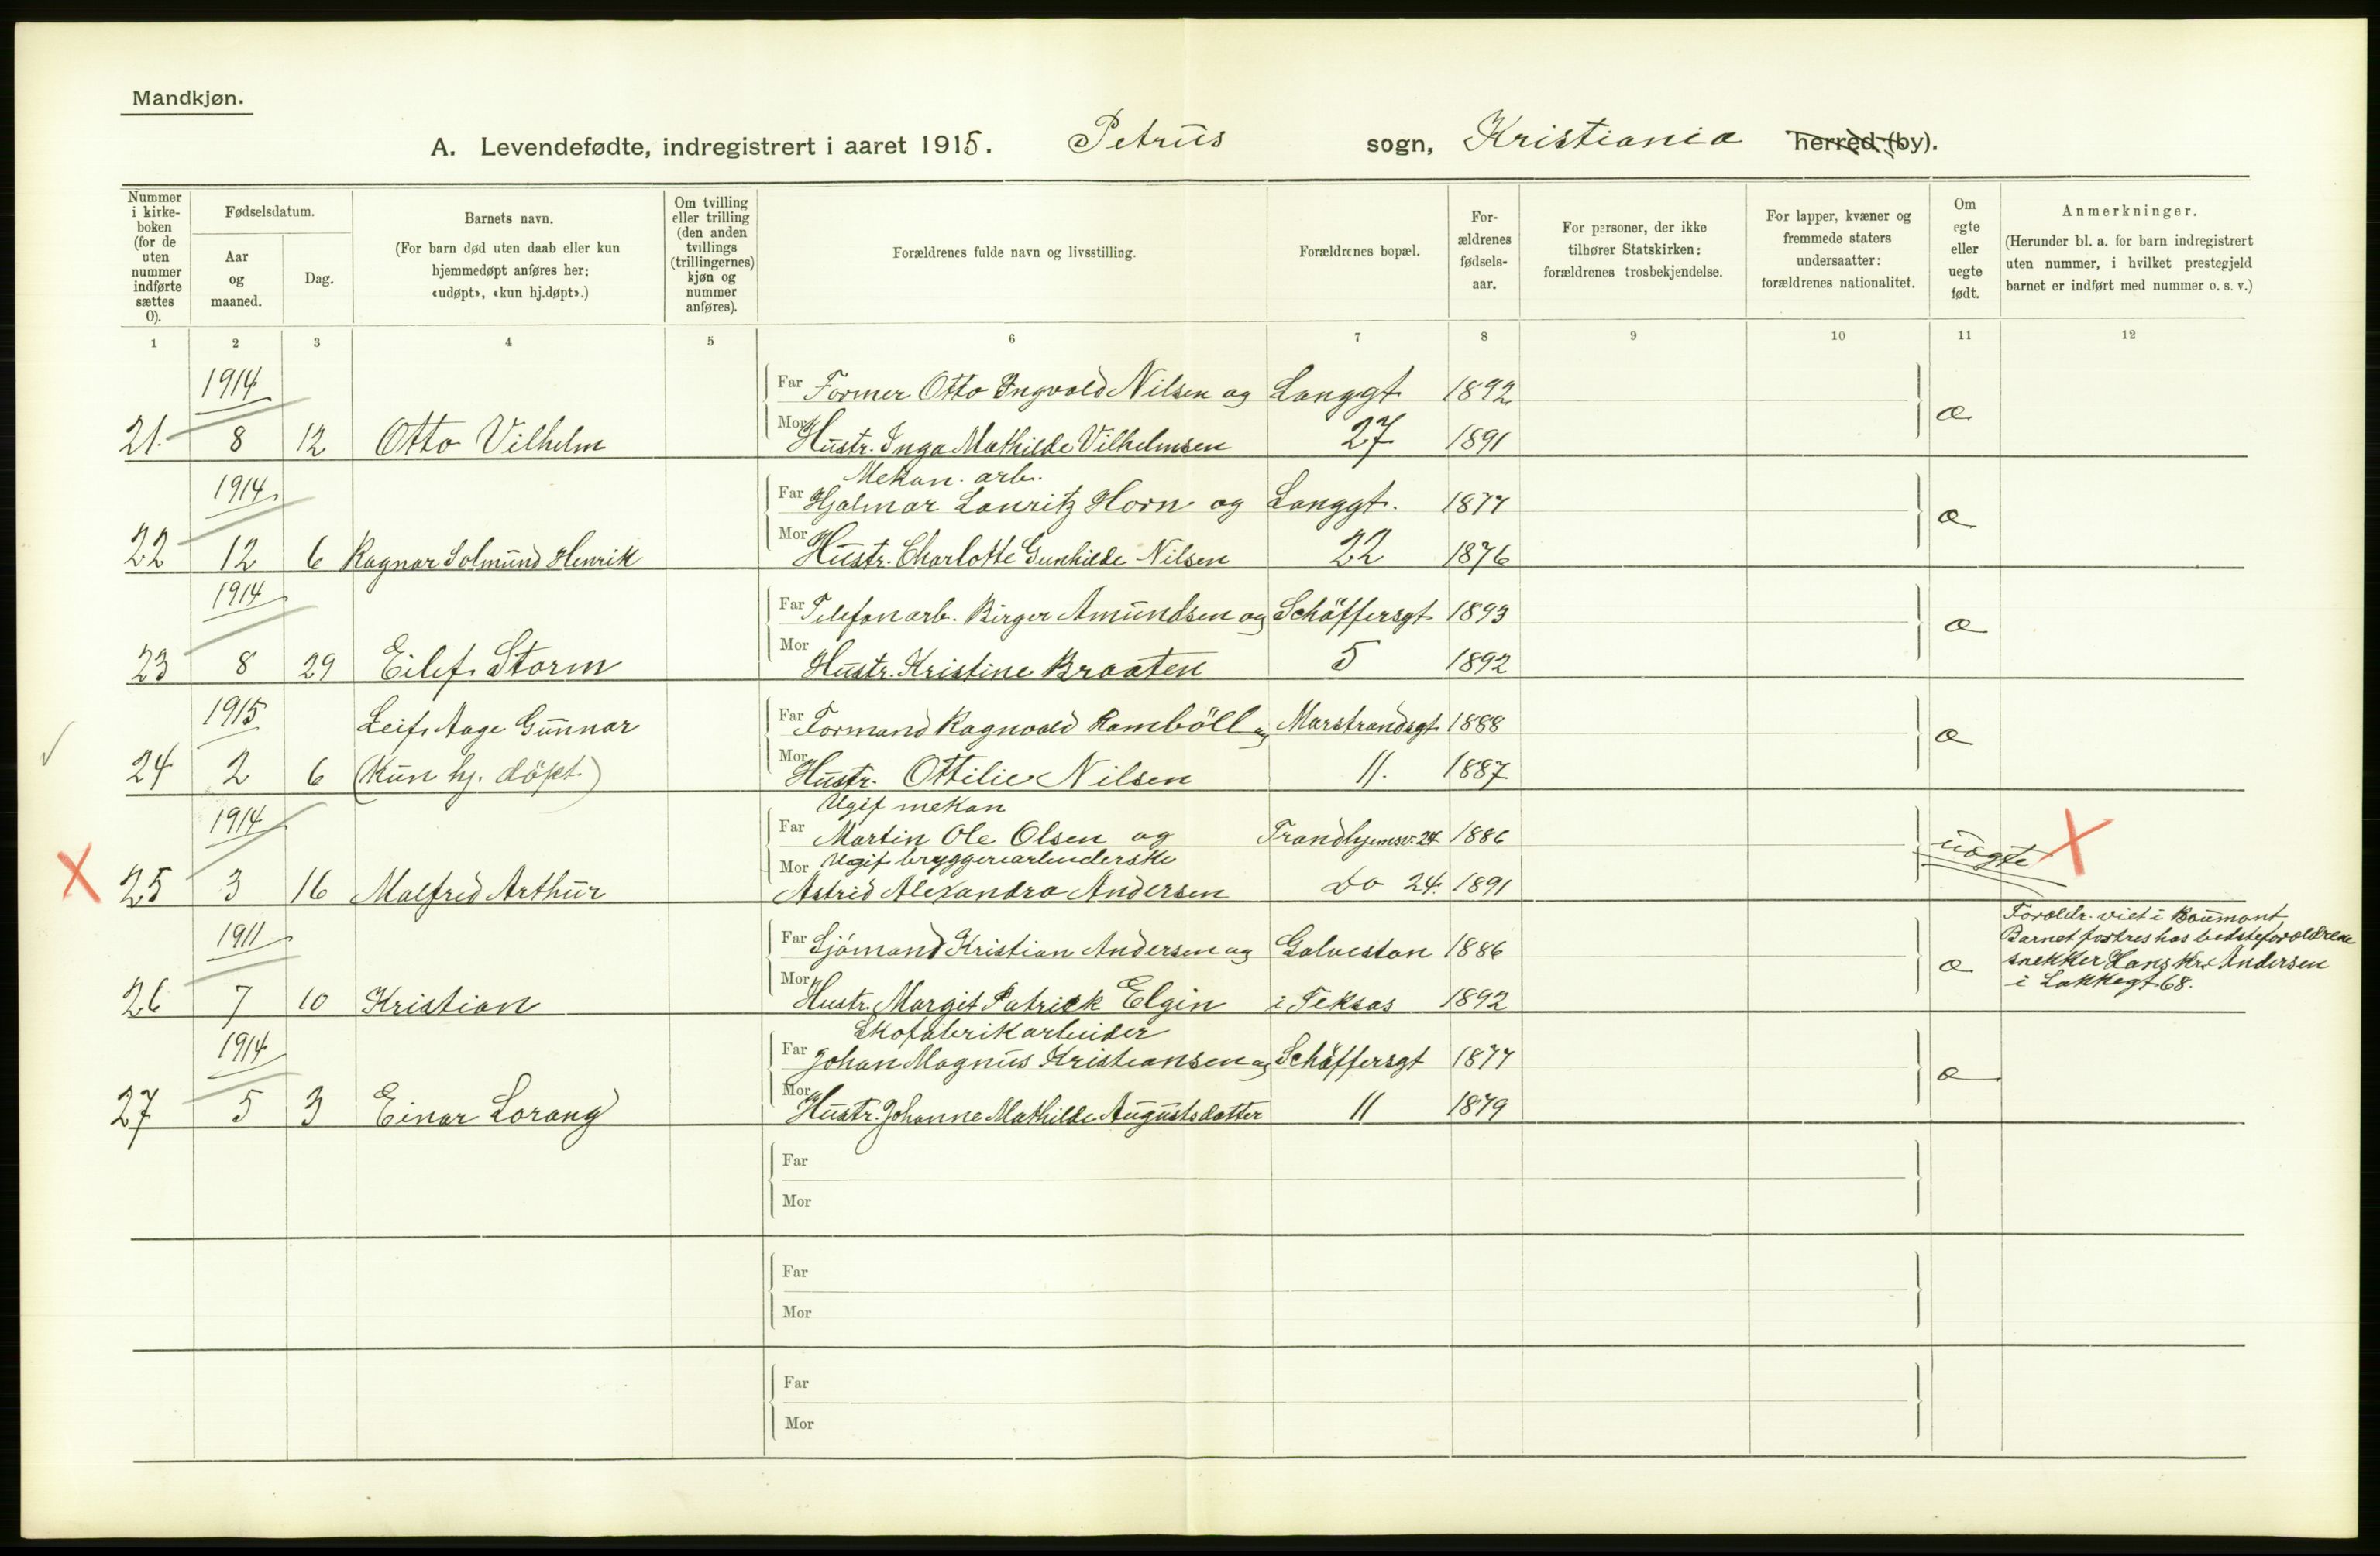 Mandkjøn.
A. Levendefødte, indregistrert i aaret 1915. Petrus sogn, Kristiania herred (by).
Nummer i kirke-boken (for de uten nummer indførte sættes 0).
Fødselsdatum.
Aar og maaned.
Dag.
Barnets navn.
(For barn død uten daab eller kun
hjemmedøpt anføres her:
«udøpt», «kun hj.døpt».)
Om tvilling
eller trilling
(den anden
tvillings
(trillingernes)
kjøn og
nummer
anføres).
Forældrenes fulde navn og livsstilling.
Forældrenes bopæl.
For-
ældrenes
fødsels-
aar.
For personer, der ikke
tilhører Statskirken:
forældrenes trosbekjendelse.
For lapper, kvæner og
fremmede staters
undersaatter:
forældrenes nationalitet.
Om
egte
eller
uegte
født.
Anmerkninger.
(Herunder bl. a. for barn indregistrert
uten nummer, i hvilket prestegjeld
barnet er indført med nummer o. s. v.)
1 2 3 4 5 6 7 8 9 10 11 12
1914
Far Former Otto Ingvald Nilsen og Langgt 1892
21. 8 12 Otto Vilhelm
Mor Hustr. Inga Mathilde Vilhelmsen 27 1891
æ
Mekan. arb.
1914
Far Hjalmar Lauritz Horn og Langgt. 1877
22 12 6 Ragnar Solmund Henrik
Mor Hustr. Charlotte Gunhilde Nilsen 22 1876
æ
1914
Far Telefonarb. Birger Amundsen og Schäffersgt 1893
23 8 29 Eilef Storm
Mor Hustr. Kristine Braaten 5 1892
æ
1915 Leif Aage Gunnar
Far Formand Ragnvald Ramböll og Marstrandsgt 1888
24 2 6 (Kun hj. döpt)
Mor Hustr. Ottilie Nilsen 11. 1887
æ
Ugif mekan
1914
Far Martin Ole Olsen og Trondhjemsv. 24 1886
uægte
Ugif bryggeriarbeiderske
25 3 16 Malfred Arthur
Mor Astrid Alexandra Andersen Do 24. 1891
1911
Far Sjömand Kristian Andersen og Galveston 1886
26 7 10 Kristian
Mor Hustr. Margit Patrick Elgin i Teksas 1892
æ
Foreldr. viet i Boumont
Barnet fostres hos bedsteforældrene
snekker Hans Kr. Andersen
i Lakkegt 68.
Skofabrikarbeider
1914
Far Johan Magnus Kristiansen og Schäffersgt 1877
27 5 3 Einar Lorang
Mor Hustr. Johanne Mathilde Augustsdatter 11 1879
æ
Far
Mor
Far
Mor
Far
Mor